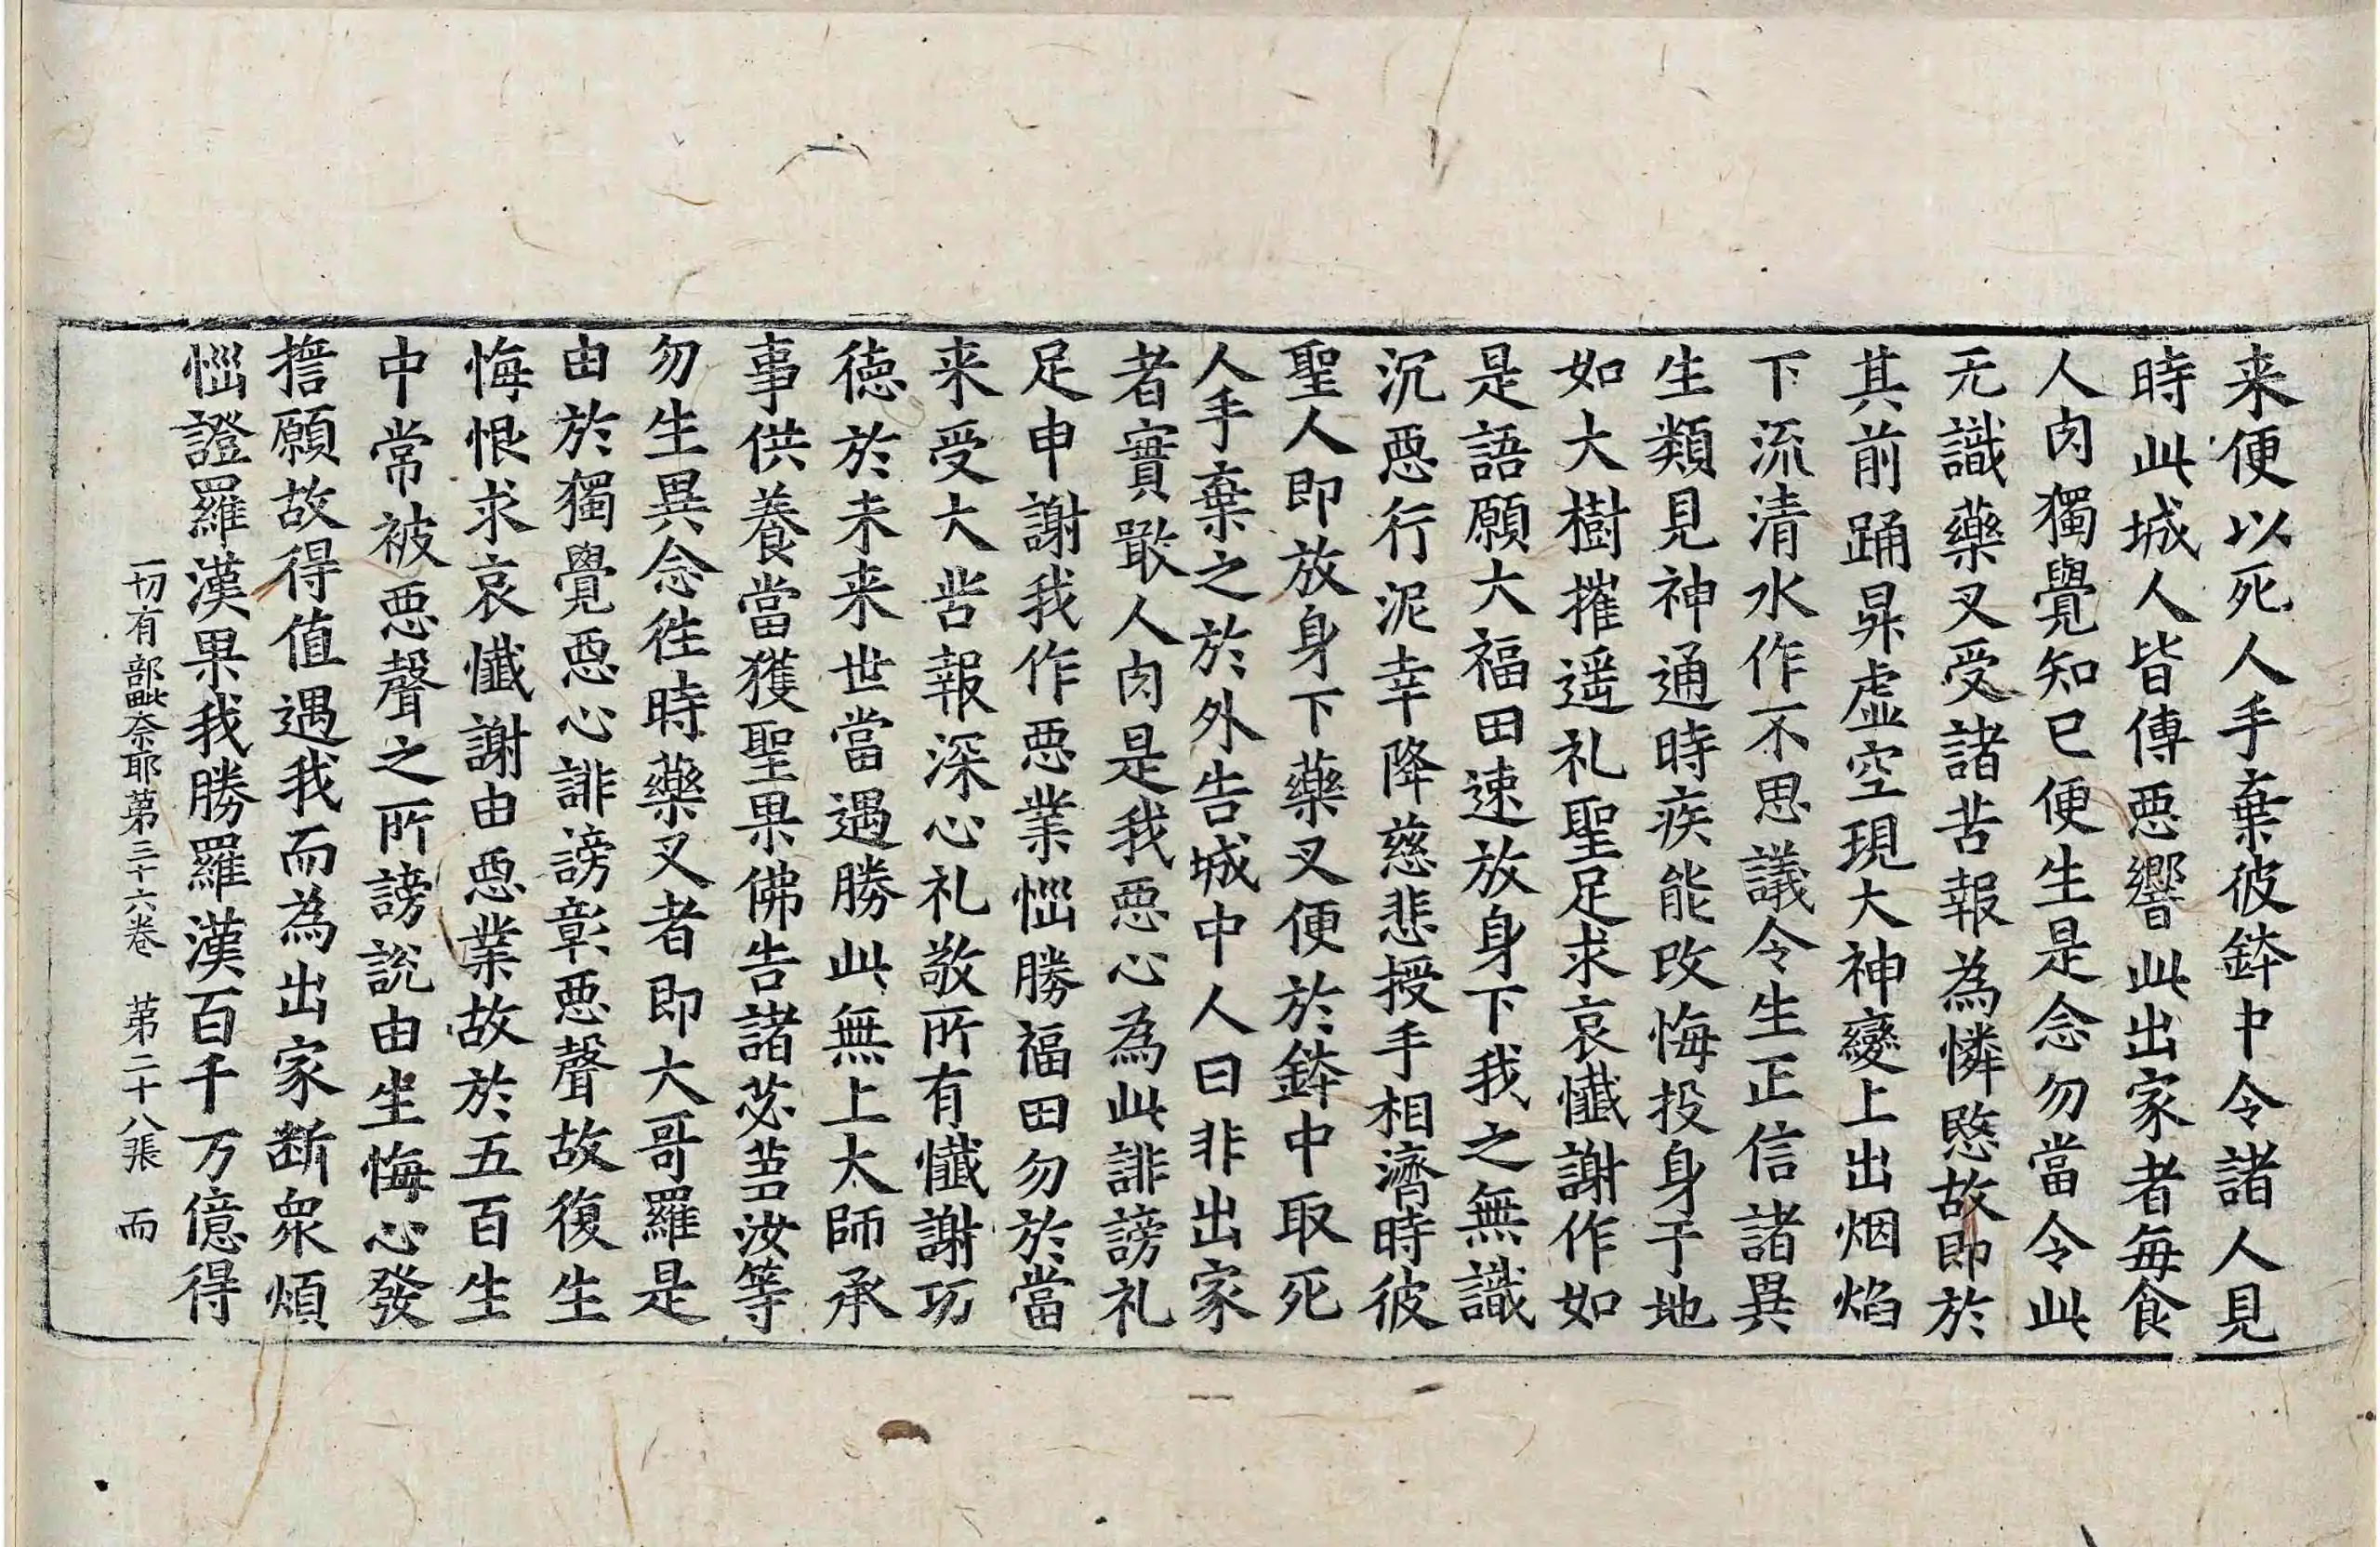 来便以死人手棄彼鉢中令諸人見
時此城人皆傳惡響此出家者毎食
人肉獨覺知已便生是念勿當令此
无識藥叉受諸苦報為憐愍故即於
其前踊昇虛空現大神變上出烟焰
下流清水作不思議令生正信諸異
生類見神通時疾能改悔投身于地
如大樹摧遥礼聖足求哀懺謝作如
是語願大福田速放身下我之無識
沉惡行泥幸降慈悲授手相濟時彼
聖人即放身下藥叉便於鉢中取死
人手棄之於外告城中人曰非出家
者實噉人肉是我惡心為此誹謗礼
足申謝我作惡業惱勝福田勿於當
来受大苦報深心礼敬所有懺謝功
徳於未来世當遇勝此無上大師承
事供養當獲聖果佛告諸苾芻汝等
勿生異念往時藥叉者即大哥羅是
由於獨覺惡心誹謗彰惡聲故復生
悔恨求哀懺謝由惡業故於五百生
中常被惡聲之所謗説由生悔心發
擔願故得值遇我而為出家斷衆煩
惱證羅漢果我勝羅漢百千万億得
一切有部毗奈耶第三十六卷 第二十八張 而